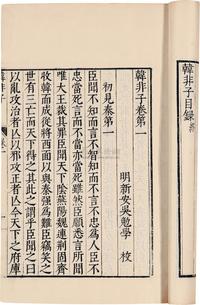 韓非子目録終
韓非子卷第一
明新安吳勉學 校
初見秦第一
臣聞不知而言不智知而不言不忠爲人臣不
忠當死言而不當亦當死雖然臣願悉言所聞
唯大王裁其罪臣聞天下陰燕陽魏連荆固齊
收韓而成從將西面以與秦强爲難臣竊笑之
世有三亡而天下得之其此之謂乎臣聞之曰
以亂攻治者亡以邪攻正者亡今天下之府庫
韓非子
卷一
一